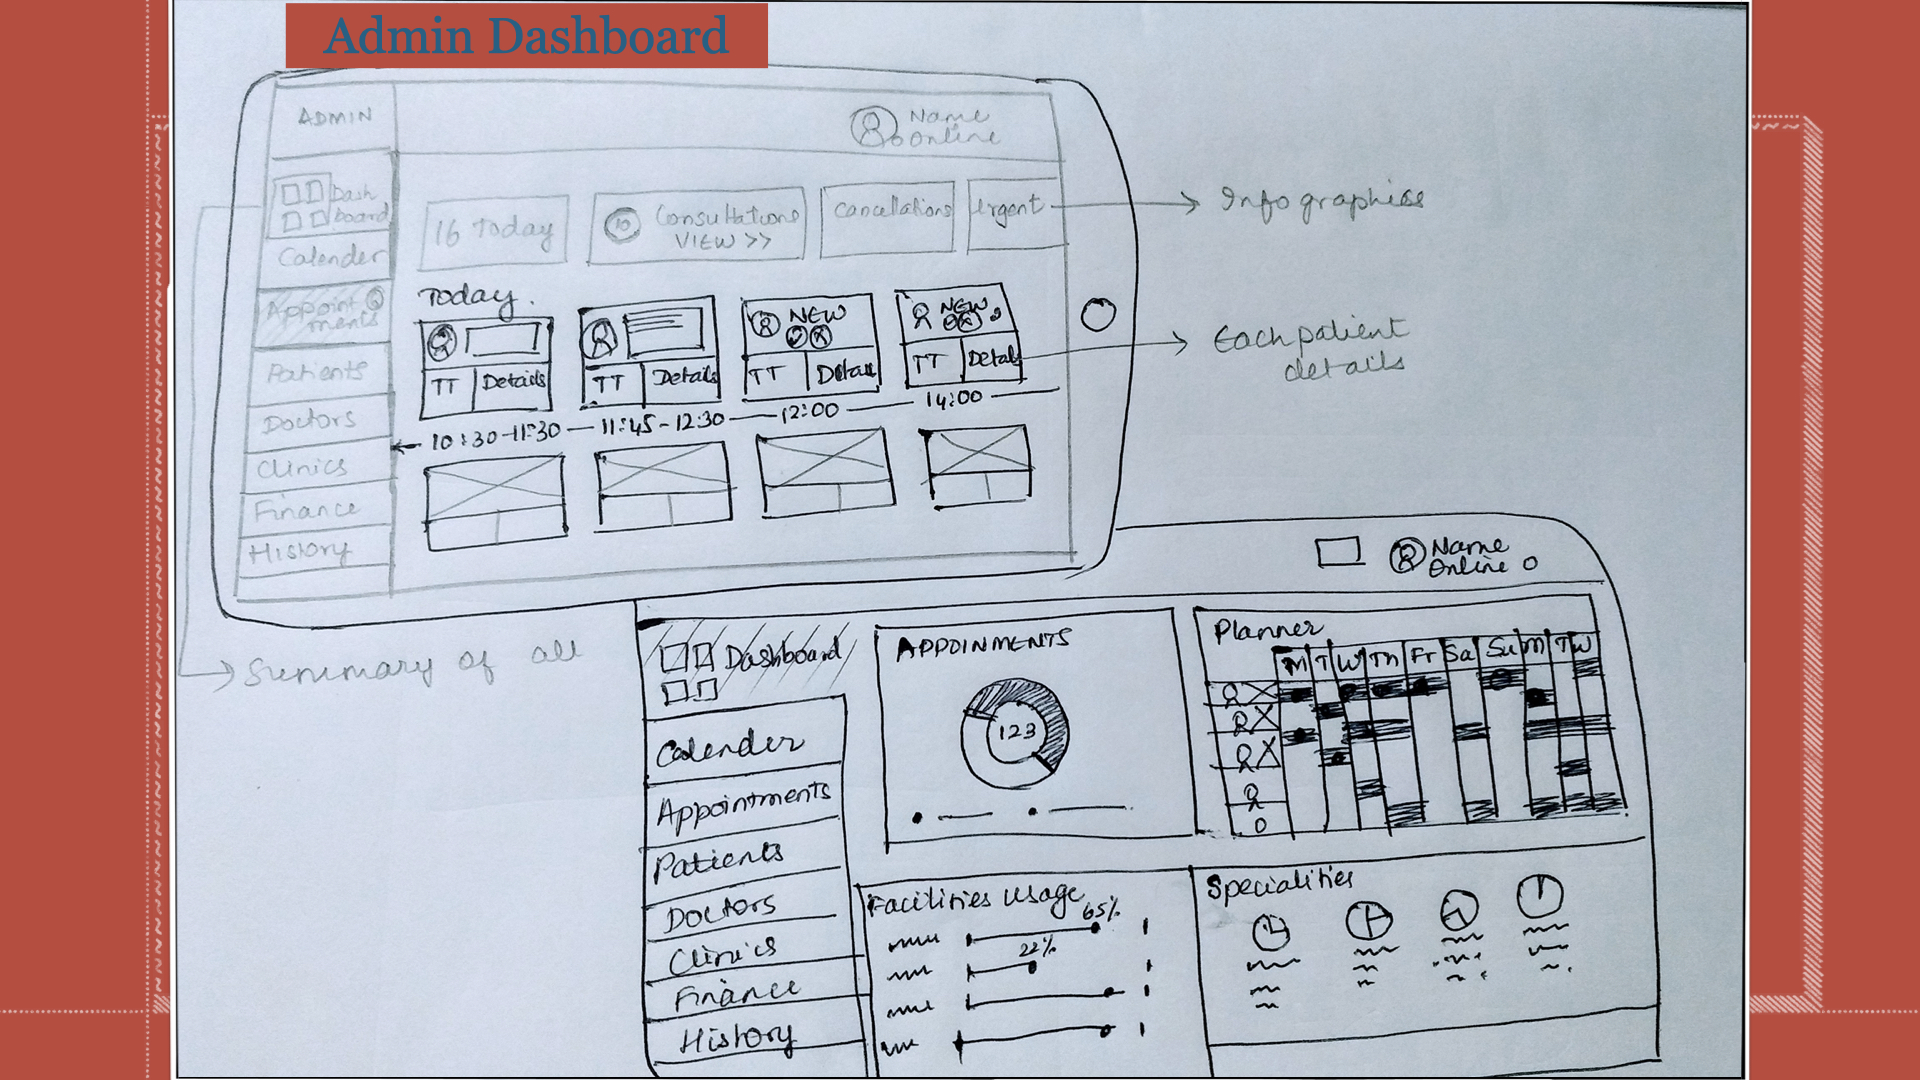 Admin Dashboard
ADMIN
Name
Online
Dash
board
Calender
Appoint
ments
Patients
Doctors
Clinics
Finance
History
16 Today
10 Consultations
VIEW >>
Cancellations
Urgent
Info graphics
Today.
TT Details
TT Details
NEW
TT Detail
NEW
TT Details
Each patient
details
10:30-11:30 11:45-12:30 12:00 14:00
Summary of all
Name
Online
Dashboard
Calender
Appointments
Patients
Doctors
Clinics
Finance
History
APPOINMENTS
123
Planner
M T W Th Fr Sa Su M T W
Facilities Usage
65%
22%
Specialities